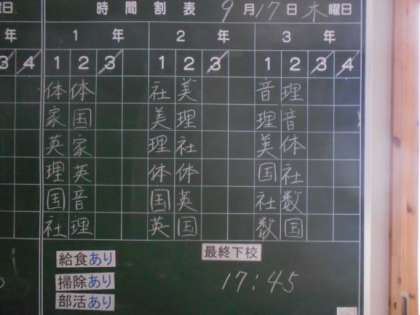 曜日 時間割表 9月17日木曜日
年 1年 2年 3年
3 4 1 2 3 1 2 3 1 2 3 4
体 体 社 美 音 理
家 国 美 理 理 音
英 家 理 社 美 体
理 英 体 体 国 社
国 音 国 英 社 数
社 理 英 国 数 国
給食あり 最終下校
掃除あり 17:45
部活あり